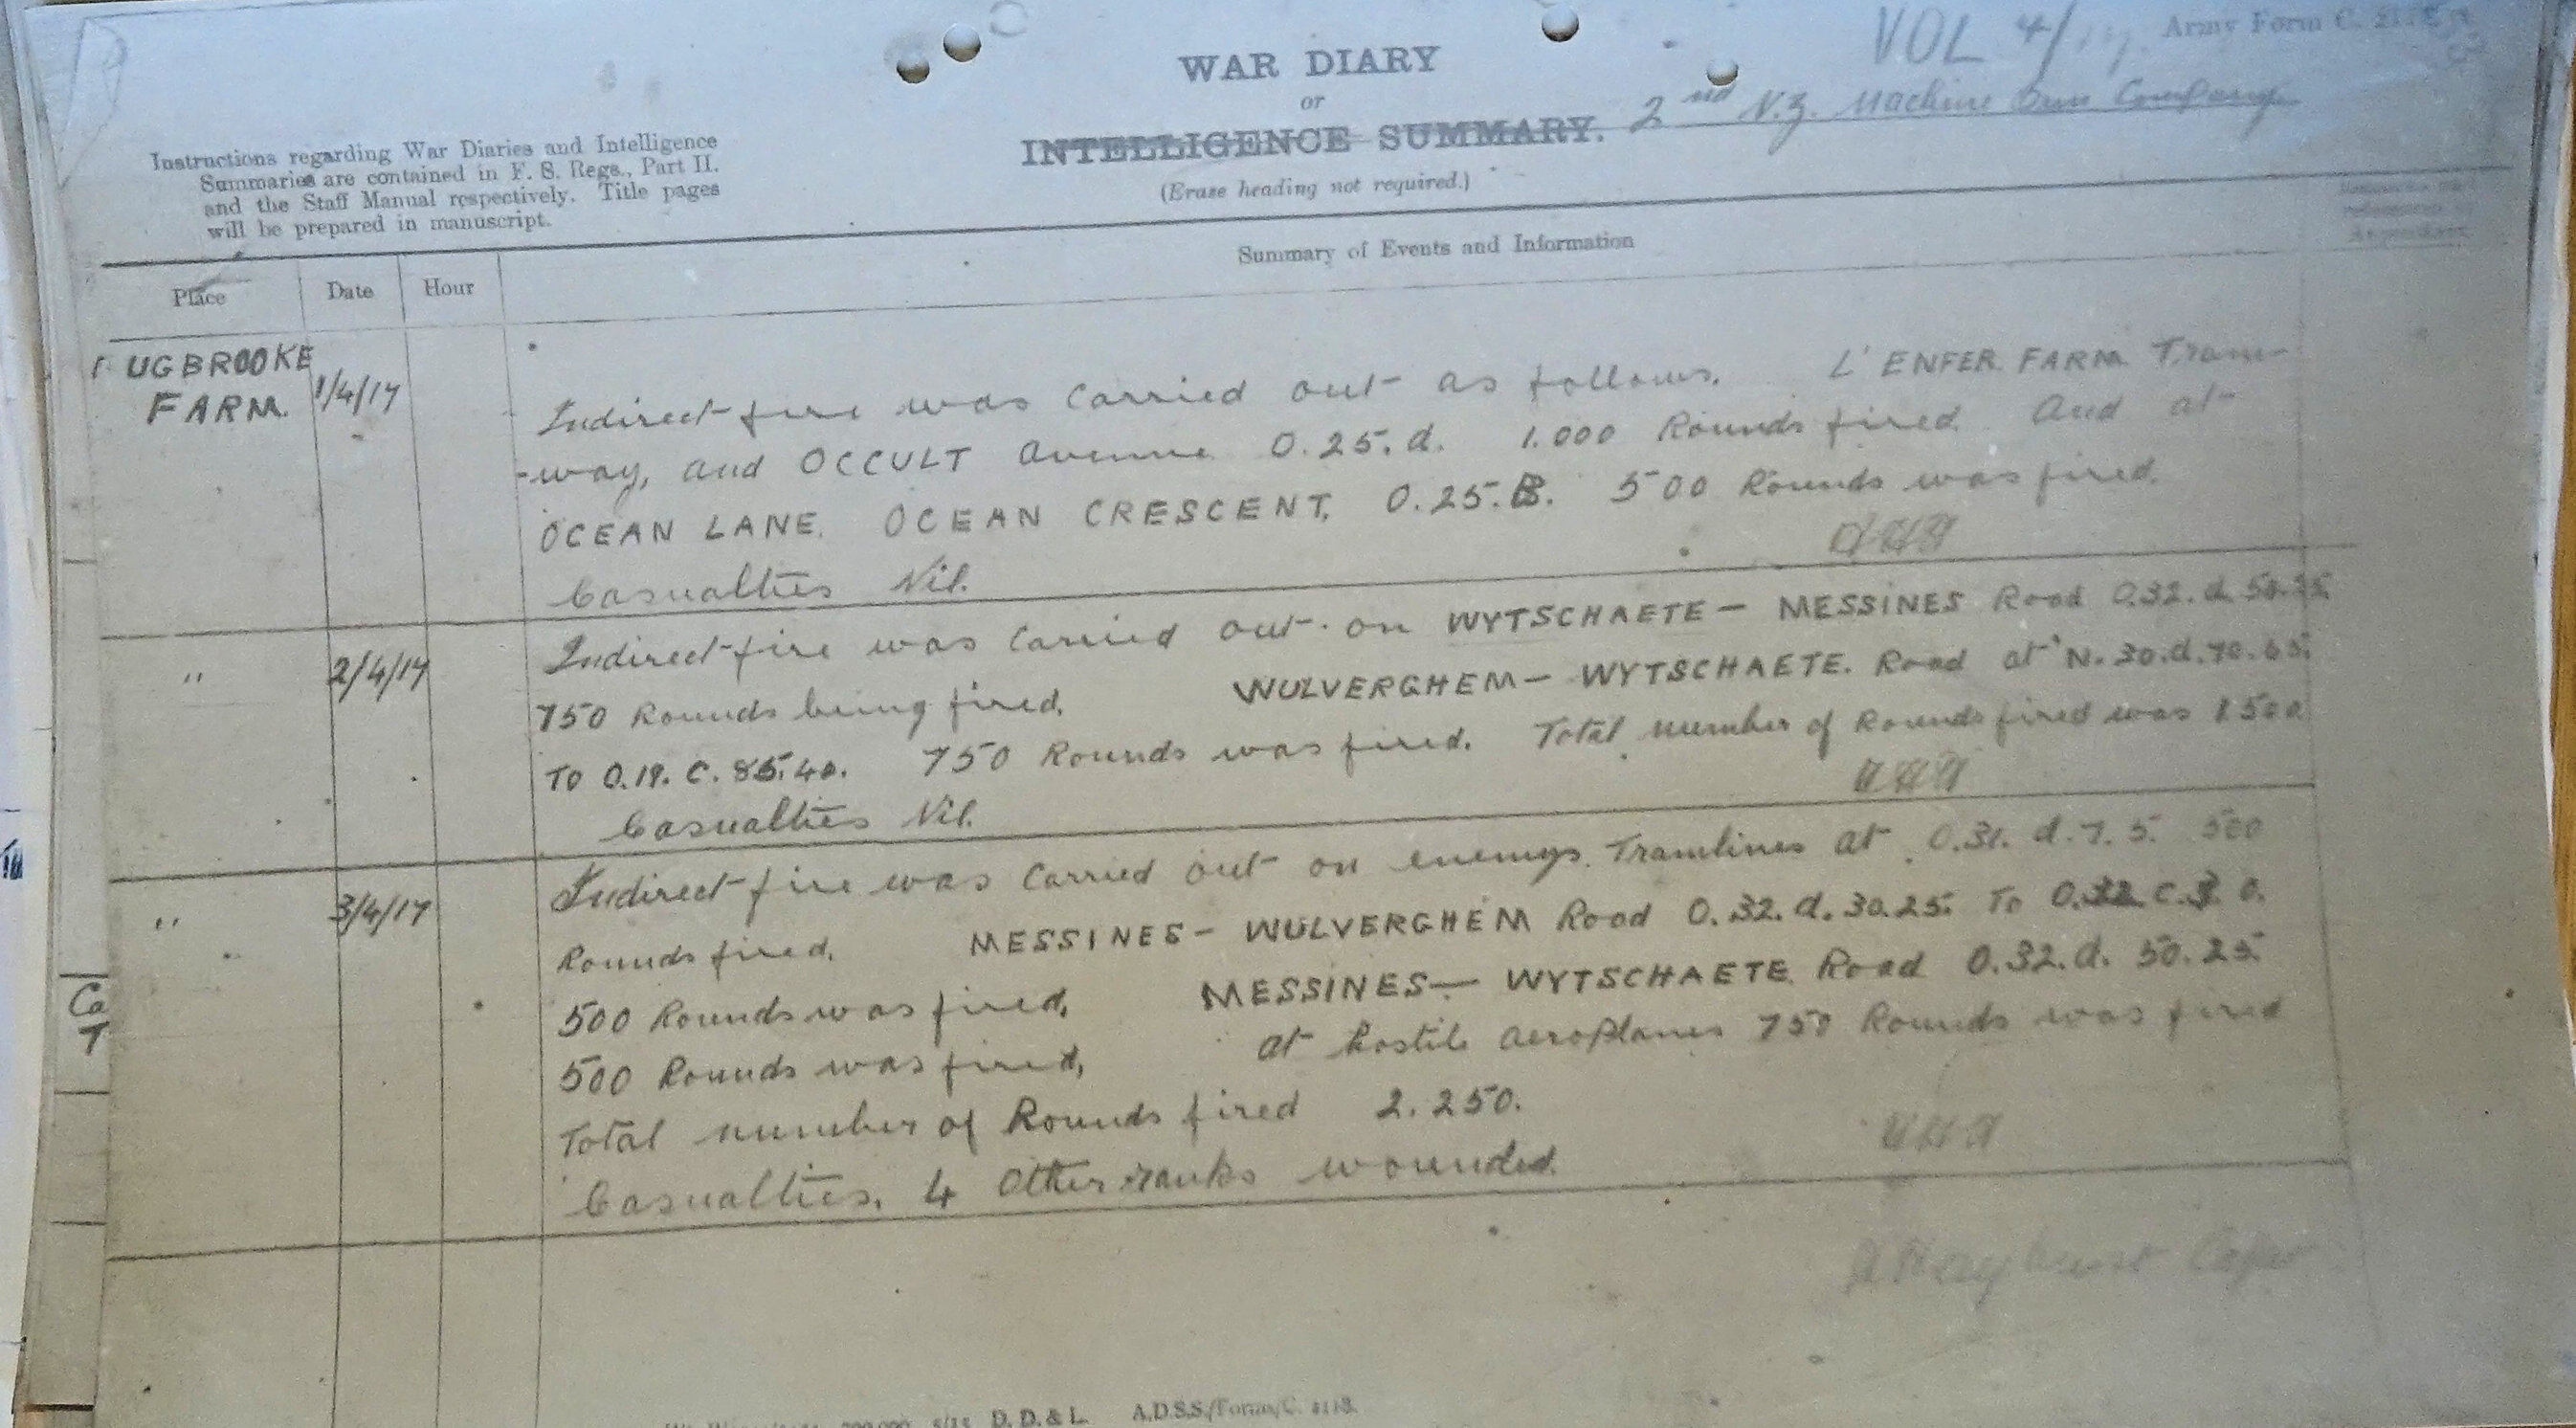 VOL 4/17. Army Form C. 2118
WAR DIARY
or
INTELLIGENCE SUMMARY.
2nd N.Z. Machine Gun Company
(Erase heading not required.)
Instructions regarding War Diaries and Intelligence
Summaries are contained in F. S. Regs., Part II.
and the Staff Manual respectively. Title pages
will be prepared in manuscript.
Summary of Events and Information
Place Date Hour
UGBROOKE
FARM. 1/4/17
Indirect fire was carried out as follows. L'ENFER FARM Tram-
-way, and OCCULT Avenue O.25.d. 1.000 Rounds fired. And at
OCEAN LANE. OCEAN CRESCENT, O.25.B. 500 Rounds was fired.
Casualties Nil.
" 2/4/17 Indirect fire was carried out on WYTSCHAETE - MESSINES Road O.32.d.50.25
750 Rounds being fired. WULVERGHEM - WYTSCHAETE. Road at N.30.d.70.65.
To O.19.C.85.40. 750 Rounds was fired. Total number of Rounds fired was 1500
Casualties Nil.
" 3/4/17 Indirect fire was carried out on enemys Tramlines at O.31.d.7.5. 500
Rounds fired. MESSINES - WULVERGHEM Road O.32.d.30.25. To O.32.C.3.0.
500 Rounds was fired, MESSINES - WYTSCHAETE Road O.32.d.50.25
500 Rounds was fired, at hostile aeroplanes 750 Rounds was fired
Total number of Rounds fired 2.250.
Casualties. 4 Other ranks wounded.
Co
T
D. D. & L. A.D.S.S./Forms/C. 2118.